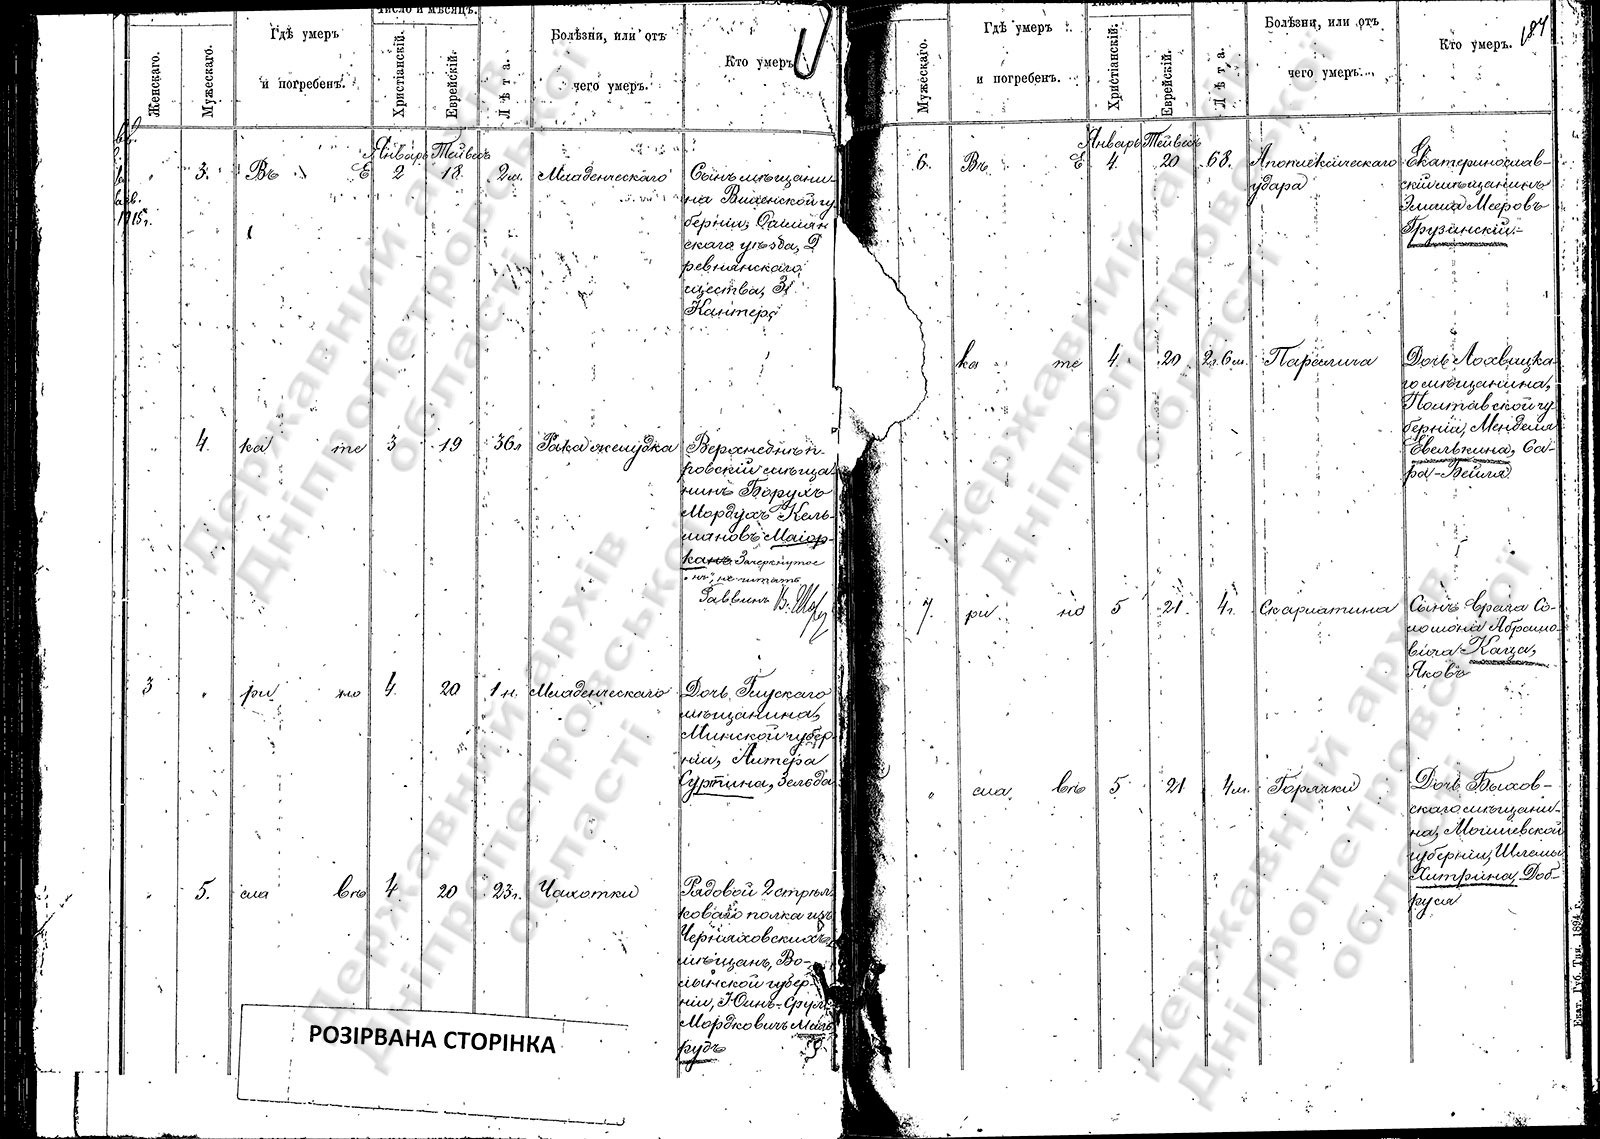 Число и мѣсяцъ.
Женскаго.
Мужескаго.
Гдѣ умеръ
и погребенъ.
Христіанскій.
Еврейскій.
Лѣта.
Болѣзни, или отъ
чего умеръ.
Кто умеръ
Январь Тейвесъ
3. Въ Е 2 18 2 м. Младенческаго
Сынъ мѣщани
на Виленской гу
берніи, Ошмян
скаго уѣзда, Д
ревнянскаго
щества,
Кантера
4. ка те 3 19 36 л Рака желудка
Верхнеднѣп
ровскій мѣща
нинъ Борухъ
Мордухъ Кель
мановъ Маіор
канъ Зачеркнутое
„нъ“ не читать
Раввинъ
3 " ри но 4 20 1 н. Младенческаго
Дочь Глускаго
мѣщанина,
Минской губер
ніи, Алтера
Суртина, Зельда
" 5. сла въ 4 20 23 г. Чахотки
Рядовой 2 стрѣл
коваго полка изъ
Черняховскихъ
мѣщанъ, Во-
лынской губер-
ніи, Срул
Мордковичъ Маль
рудъ
РОЗІРВАНА СТОРІНКА
184
Мужескаго.
Гдѣ умеръ
и погребенъ.
Христіанскій.
Еврейскій.
Лѣта.
Болѣзни, или отъ
чего умеръ.
Кто умеръ.
Январь Тейвесъ
6. Въ Е 4 20 68. Апоплексическаго
удара
Екатеринослав-
скій мѣщанинъ
Мееровъ
Грузинскій.-
ка те 4 20 2 г. 6 м. Паралича
Дочь Лохвицка-
го мѣщанина,
Полтавской гу
берніи, Менделя
Евелькина, Са-
ра-Бейля
7. ри но 5 21 4 г. Скарлатина
Сынъ врача Со-
ломона Абрамо-
вича Каца,
Яковъ
" сла въ 5 21 4 м. Горячки
Дочь Быхов-
скаго мѣщани-
на, Могилевской
губерніи, Шлемы
Хитрина, Доб-
руся
Екат. Губ. Тип. 1884 г.
Державний архів
Дніпропетровської
області